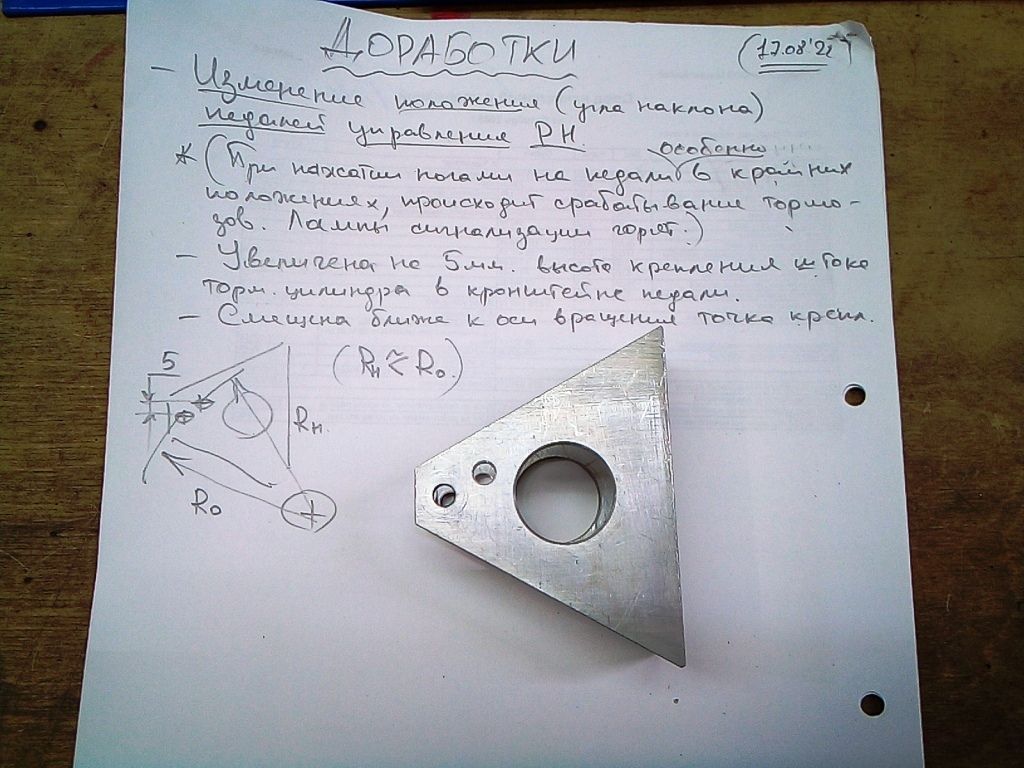 ДОРАБОТКИ
(17.08'22)
- Измерение положения (угла наклона)
педалей управления РН.
особенно
* (При нажатии ногами на педали в крайних
положениях, происходит срабатывание тормо-
зов. Лампы сигнализации горят.)
- Увеличена на 5мм. высота крепления штока
торм. цилиндра в кронштейне педали.
- Смещена ближе к оси вращения точка крепл.
(Rн ≈< Rо.)
5
Rн.
Rо